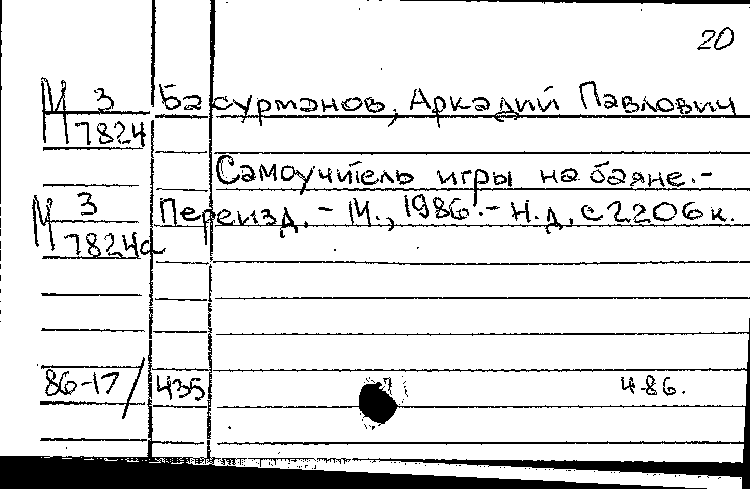 20
М 3 Басурманов, Аркадий Павлович
7824
Самоучитель игры на баяне.-
М 3 Переизд. - М., 1986. - Н.д. с 2206 к.
7824а
86-17/ 435 486.